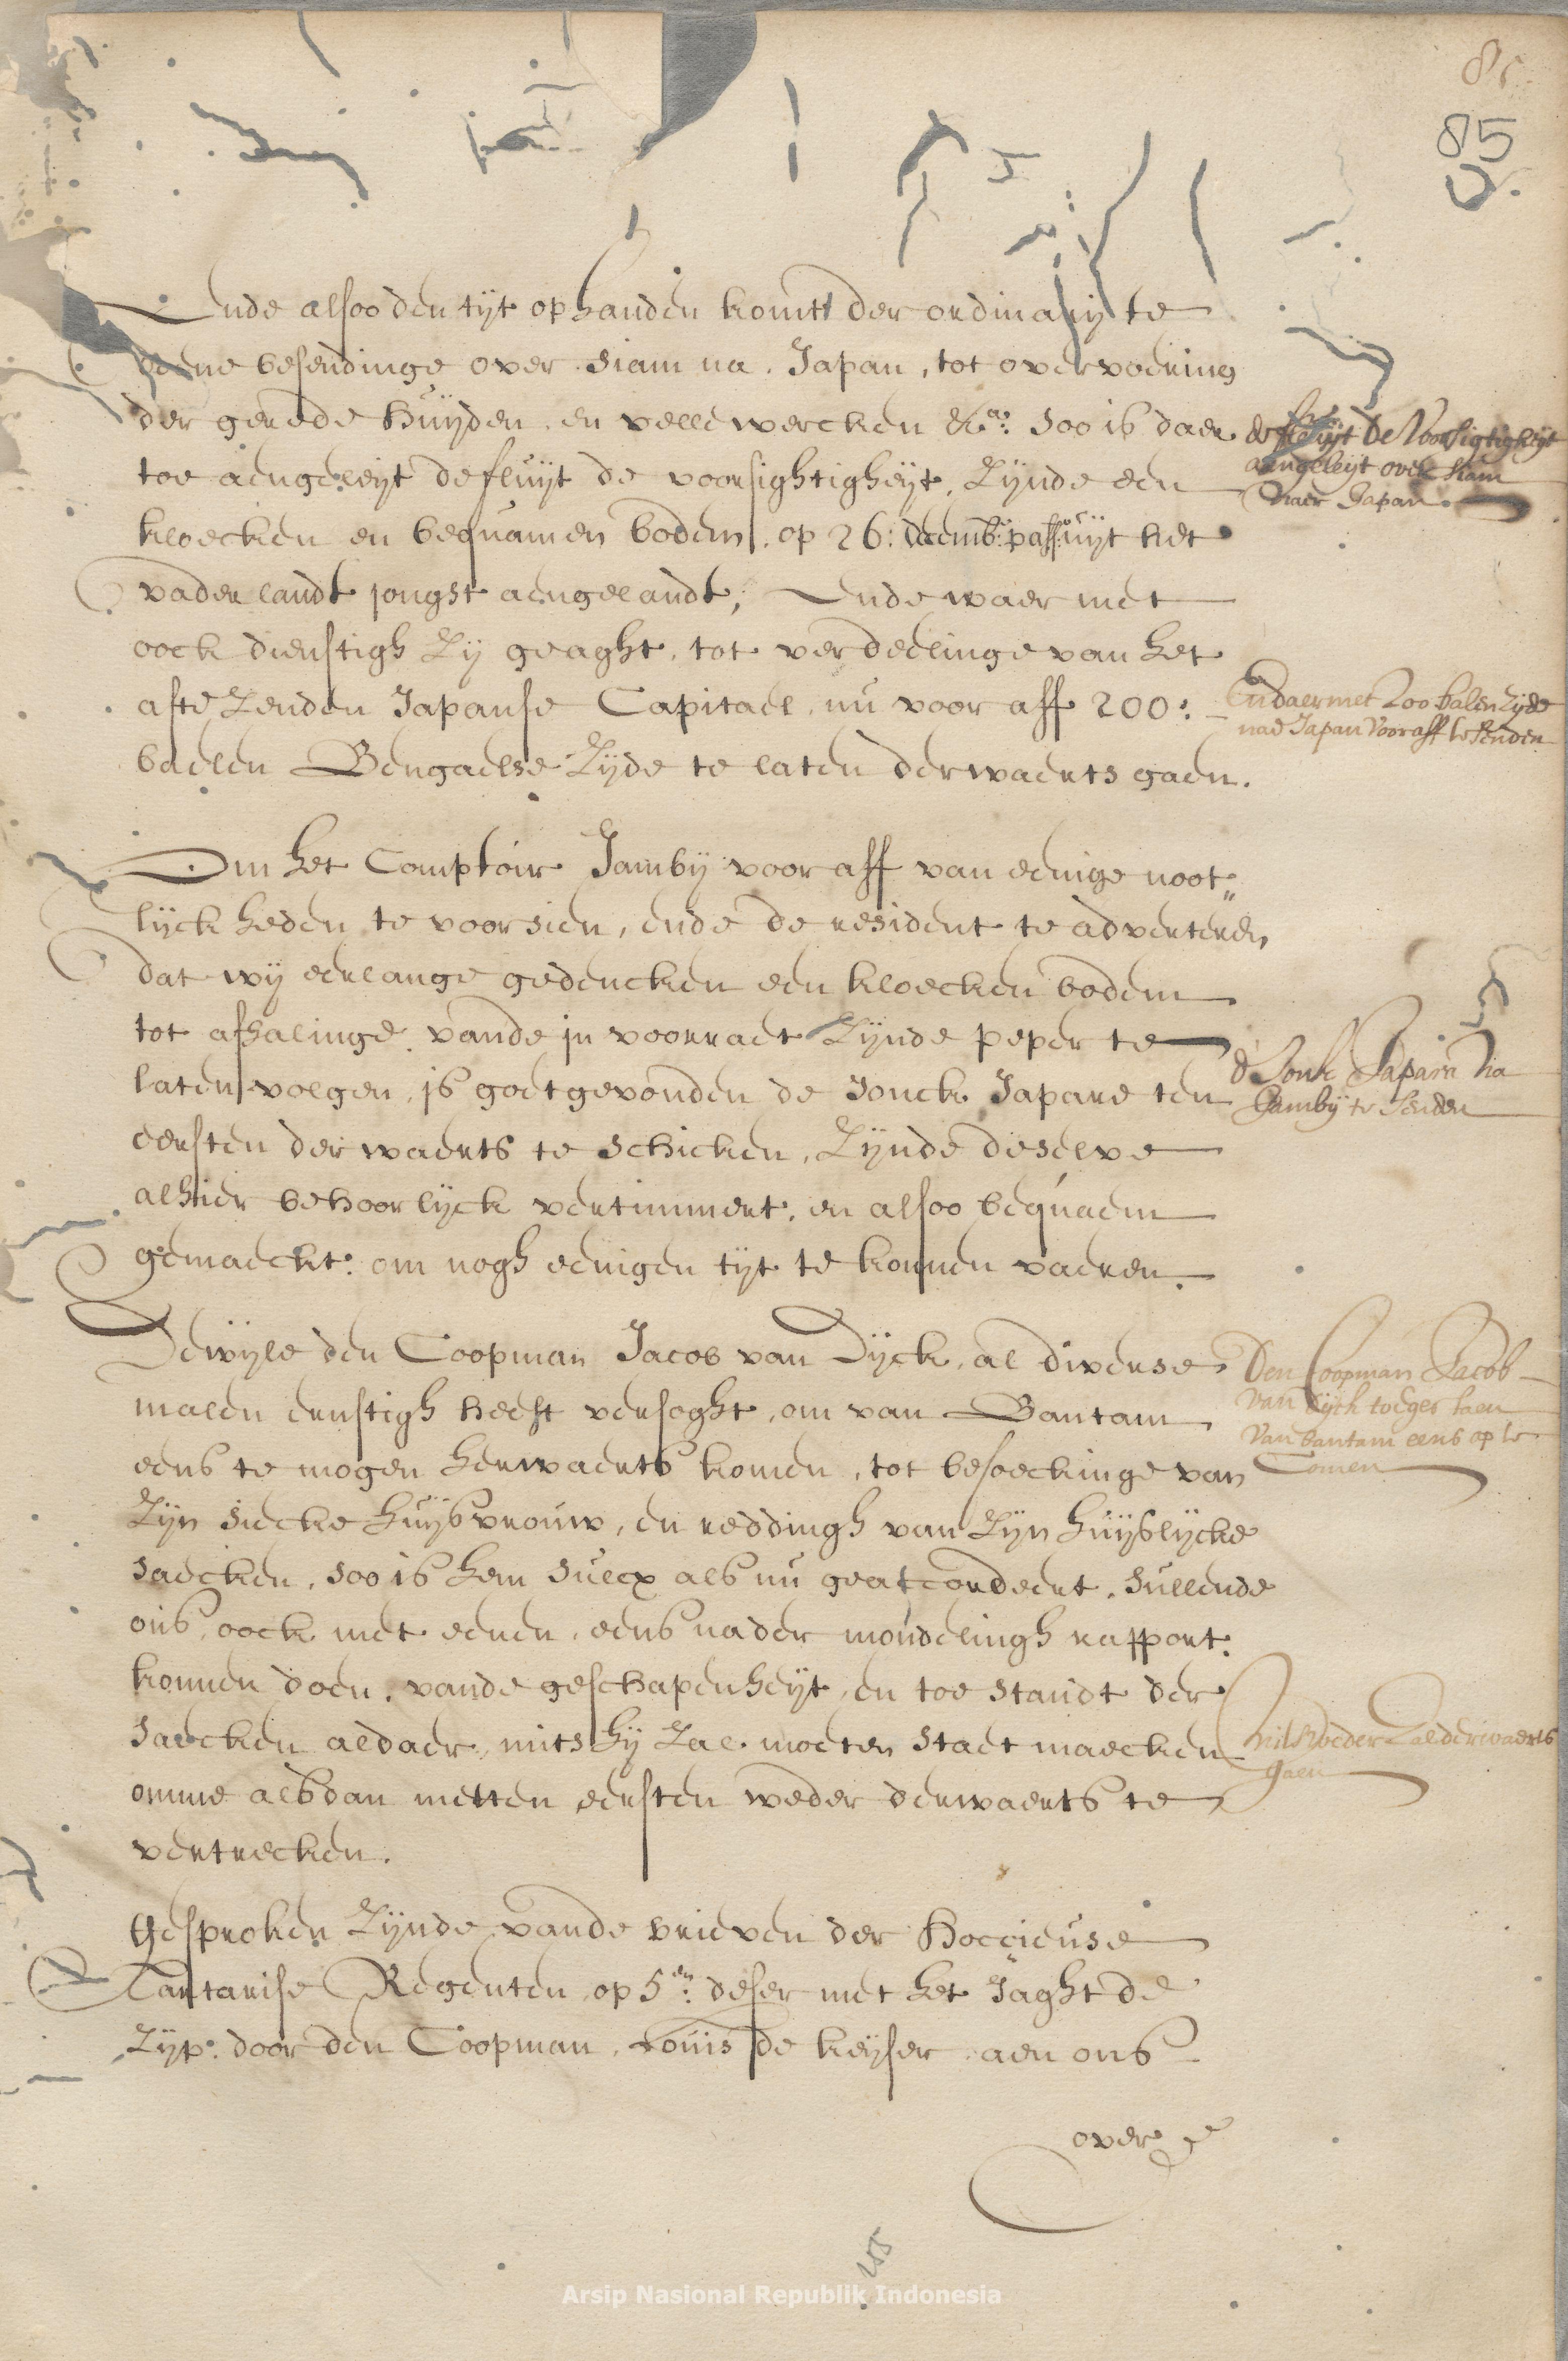 85
Ende alsoo den tijt op handen komt der ordinarij te
doene besendinge over Siam na Japan, tot overvoering
der gerede huijden, en velle wercken &ca: soo is daer
toe aengeleijt de fluijt de voorsightigheijt, Zijnde een
kloecken en bequamen bodem, op 26: decemb: passo uijt het
vaderlandt jongst aengelandt, Ende waer met
oock dienstigh Zij geaght, tot verdeelinge van het
afte Zenden Japanse Capitael, nu voor aff 200:
baelen Bengaelse Zijde te laten derwaerts gaen.
de fluijt De Voorsigtigheijt
aengeleijt over Siam
naer Japan
En daermet 200 balen Zijde
naer Japan vooraff te senden
Om het Comptoir Jambij voor aff van eenige noot„
lijckheden te voorsien, ende de resident te adverteren,
dat wij eerlange gedencken een kloecken bodem
tot afhalinge vande in voorraet Zijnde peper te
laten volgen, is goetgevonden de Jonck Japare ten
eersten derwaerts te schicken, Zijnde deselve
alhier behoorlijck vertimmert, en alsoo bequaem
gemaeckt: om nogh eenigen tijt te konnen vaeren.
d' Jonk Japara na
Jambij te senden
Dewijle den Coopman Jacob van Dijck, al diverse
malen ernstigh heeft versoght, om van Bantam
eens te mogen herwaerts komen, tot besoeckinge van
Zijn siecke huijsvrouw, en reddingh van Zijn huijslijcke
saecken, soo is hem sulcx als nu geaccordeert, sullende
ons oock met eenen, eens nader mondelingh rapport
konnen doen, vande geschapenheijt, en toe standt der
saecken aldaer, mits hij Zal moeten staet maecken
omme alsdan metten eersten weder derwaerts te
vertrecken.
Den Coopman Jacob
van Dijck toegestaen
van bantam eens op te
Comen
mits weder Zal derwaerts
gaen
Gesproken Zijnde vande brieven der Hoccieuse
Tartarise Regenten, op 5en: deser met het Jaght de
Zijp: door den Coopman, Louis de keijser, aen ons
over
Arsip Nasional Republik Indonesia